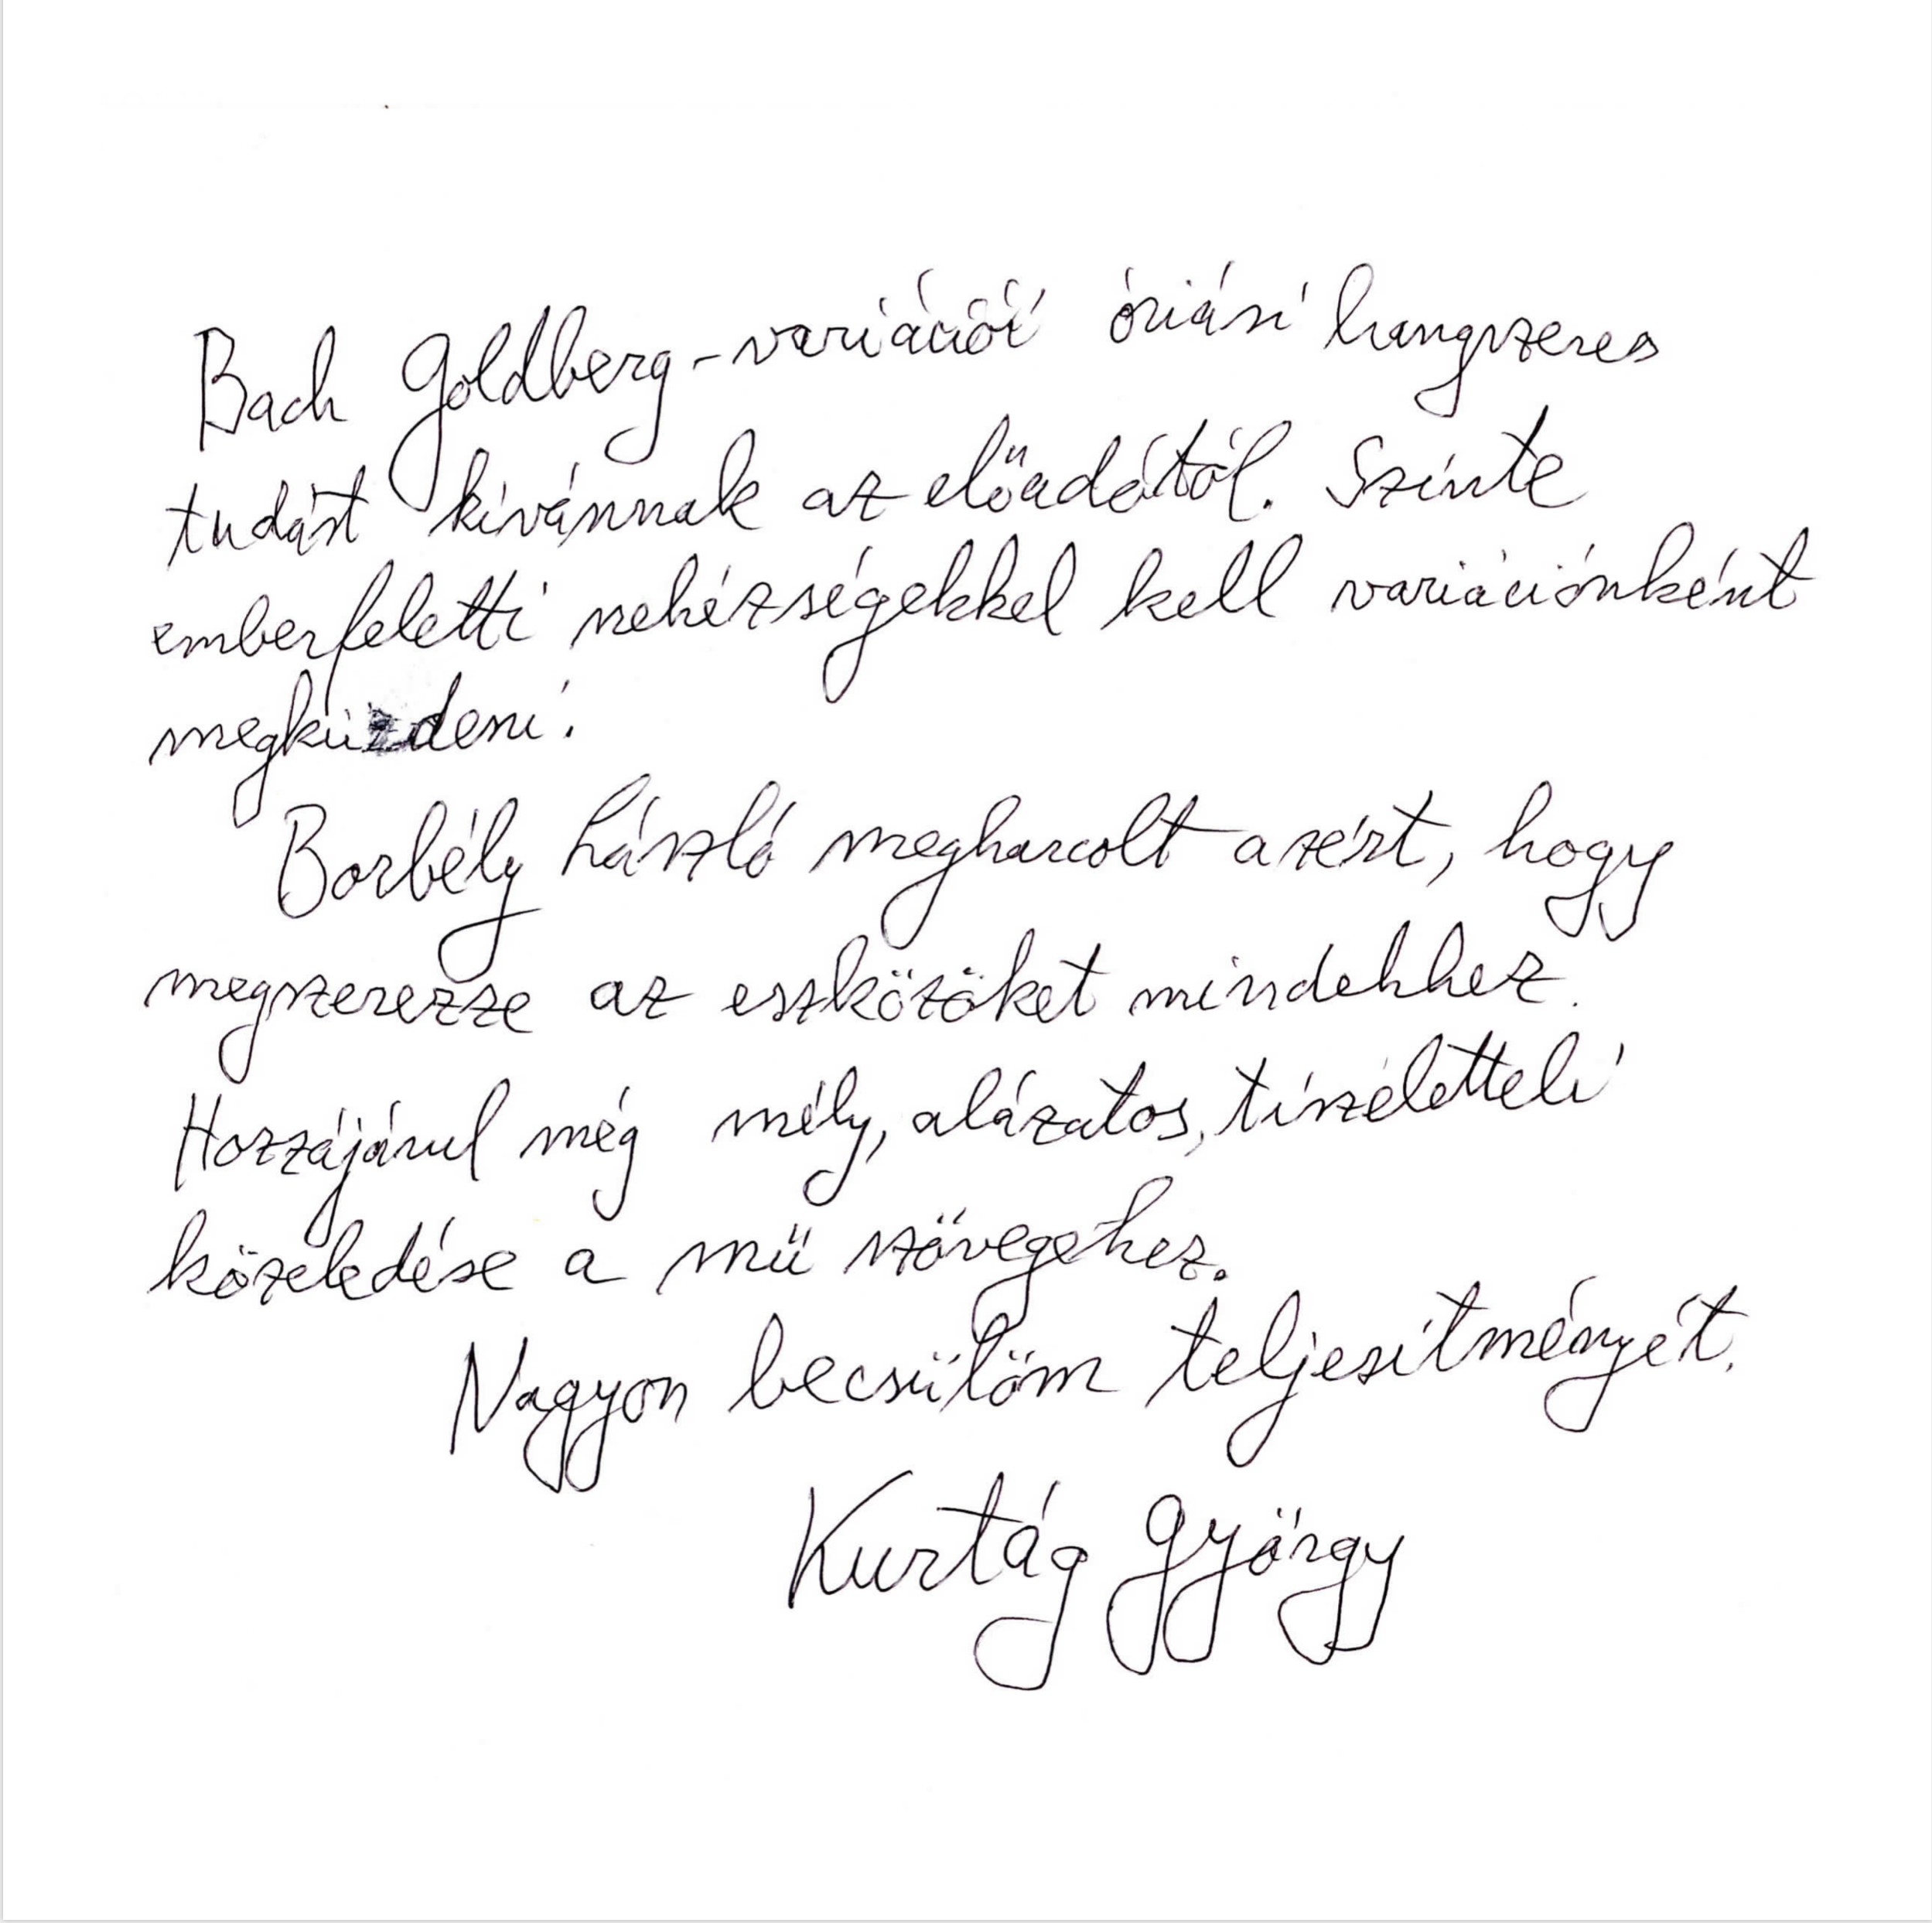 Bach Goldberg-variációi óriási hangszeres
tudást kívánnak az előadótól. Szinte
emberfeletti nehézségekkel kell variációnként
megküzdeni.
Borbély László megharcolt azért, hogy
megszerezze az eszközöket mindehhez.
Hozzájárul még mély, alázatos, tiszteletteli
közeledése a mű szövegéhez.
Nagyon becsülöm teljesítményét.
Kurtág György